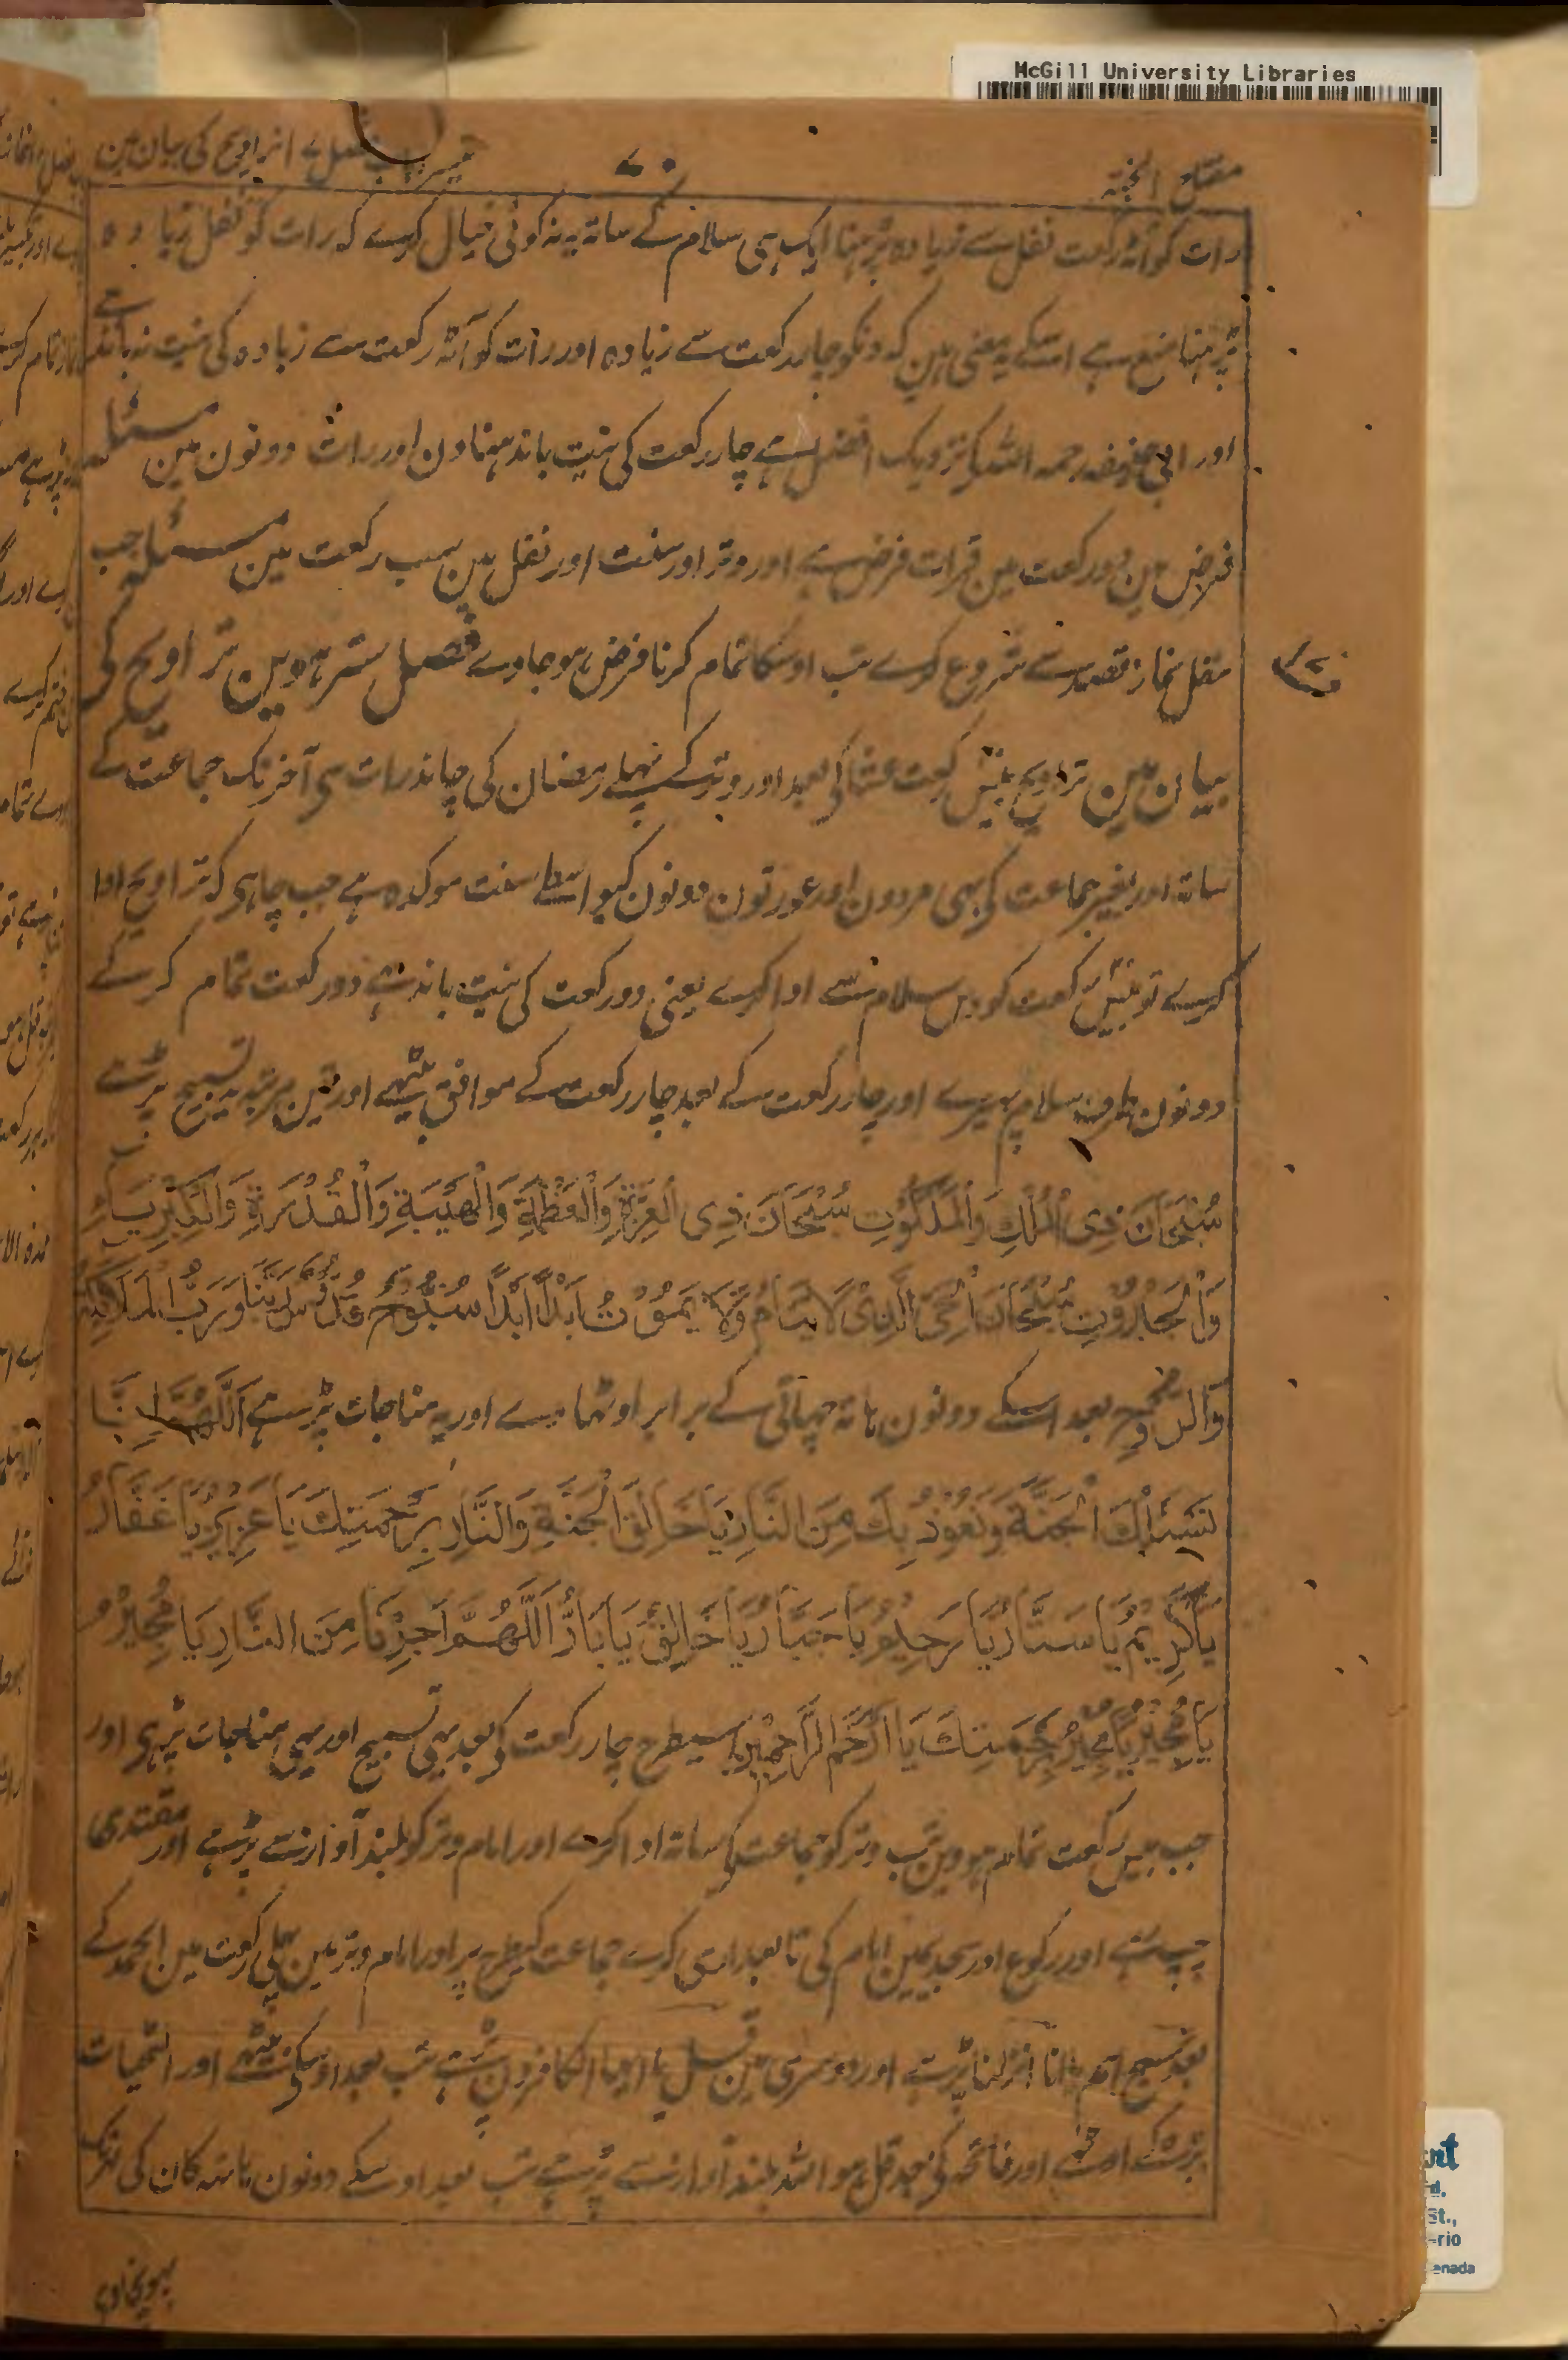 McGill University Libraries
مفتاح الجنۃ
۷۰
فصل تراویح کی بیان مین
رات کو آٹہ رکعت نفل سے زیادہ پڑہنا ایک ہی سلام کے ساتہ یہ نہ کوئی خیال کرے کہ رات کو نفل زیادہ
پڑہنا منع ہے اسکے یہ معنی ہین کہ دنکو چار رکعت سے زیادہ اور رات کو آٹہ رکعت سے زیادہ کی نیت نہ باندہے
اور ابی حنیفہ رحمہ اللہ کی نزدیک افضل ہے چار رکعت کی نیت باندہنا دن اور رات دونون مین مسئلہ
فرض مین دو رکعت مین قرات فرض ہے اور وتر اور سنت اور نفل مین سب رکعت مین مسئلہ جب
نفل نماز قصد سے شروع کرے تب اوسکا تمام کرنا فرض ہو جاوے فصل سترہوین تراویح کی
بیان مین تراویح بیس رکعت عشا کی بعد اور وتر کے پہلے رمضان کی چاند رات سی آخر تک جماعت کے
ساتہ اور بغیر جماعت کی بہی مردون اور عورتون دونون کیواسطے سنت موکدہ ہے جب چاہی کہ تراویح ادا
کرے تو بیس رکعت کو دس سلام سے ادا کرے یعنی دو رکعت کی نیت باندہے دو رکعت تمام کر کے
دونون طرف سلام پہیرے اور چار رکعت کے بعد چار رکعت کے موافق بیٹہے اور تین مرتبہ یہ تسبیح پڑہے
سُبْحَانَ ذِی الْمُلْكِ وَالْمَلَكُوْتِ سُبْحَانَ ذِی الْعِزَّةِ وَالْعَظَمَةِ وَالْهَیْبَةِ وَالْقُدْرَةِ وَالْكِبْرِیَاءِ
وَالْجَبَرُوْتِ سُبْحَانَ الْحَیِّ الَّذِیْ لَا یَنَامُ وَلَا یَمُوْتُ اَبَدًا اَبَدًا سُبُّوْحٌ قُدُّوْسٌ رَبُّنَا وَرَبُّ الْمَلَائِكَةِ
وَالرُّوْحِ بعد اسکے دونون ہاتہ چہاتی کے برابر اوٹہاوے اور یہ مناجات پڑہے اَللّٰهُمَّ اِنَّا
نَسْئَلُكَ الْجَنَّةَ وَنَعُوْذُ بِكَ مِنَ النَّارِ یَا خَالِقَ الْجَنَّةِ وَالنَّارِ بِرَحْمَتِكَ یَا عَزِیْزُ یَا غَفَّارُ
یَا كَرِیْمُ یَا سَتَّارُ یَا رَحِیْمُ یَا جَبَّارُ یَا خَالِقُ یَا بَارُّ اَللّٰهُمَّ اَجِرْنَا مِنَ النَّارِ یَا مُجِیْرُ
یَا مُجِیْرُ یَا مُجِیْرُ بِرَحْمَتِكَ یَا اَرْحَمَ الرَّاحِمِیْنَ اسیطرح چار رکعت کی بعد یہی تسبیح اور یہی مناجات پڑہی اور
جب بیس رکعت تمام ہووین تب وتر کو جماعت کی ساتہ ادا کرے اور امام وتر کو بلند آواز سے پڑہے اور مقتدی
چپ رہے اور رکوع اور سجدیمین امام کی تابعداری کرے جماعت کیطرح پر اور امام وتر مین پہلی رکعت مین الحمد کے
بعد سبح اسم یا انا انزلنا پڑہے اور دوسری مین قل یا ایہا الکافرون پڑہے تب بعد اوسکی بیٹہے اور التحیات
پڑہکے اوٹہے اور فاتحہ کی بعد قل ہو اللہ بلند آواز سے پڑہے تب بعد اوسکے دونون ہاتہہ کان کی لو تک
پہونچاوے
St.,
-rio